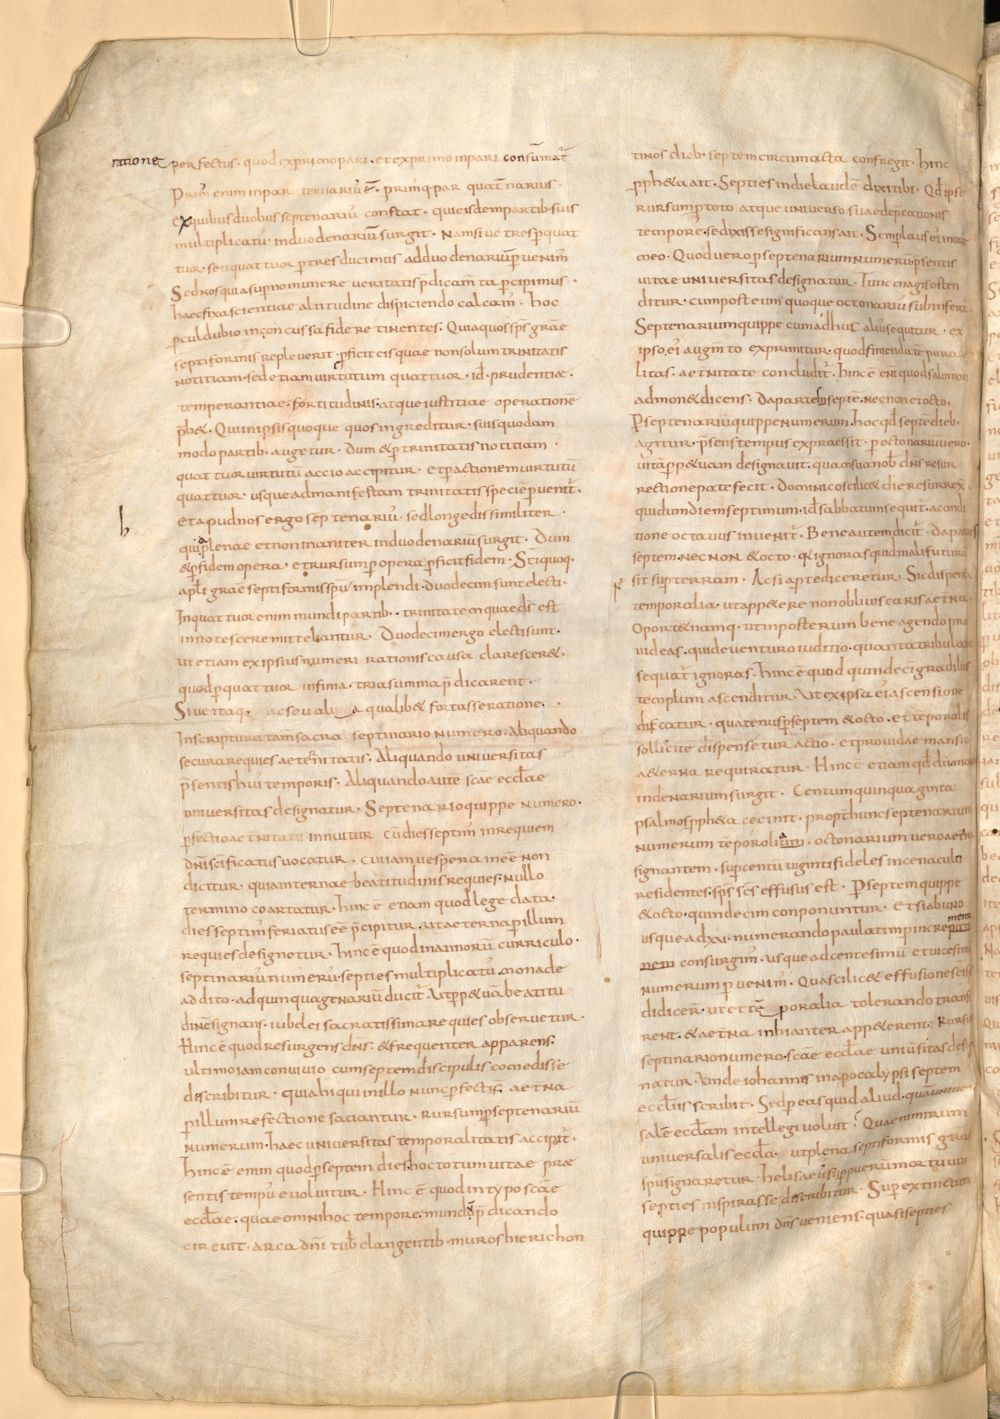 ratione perfectus· quod exprimo pari· et exprimo inpari consūmat̄
Prim̄ enim inpar ternariū ē· prim̄q· par quat̄narius·
exquibus duobus septenariū constat· qui eisdem partib· suis
multiplicatū induodenariūm surgit· Nam siue tres p̄ quat
tuor· seu quattuor p̄ tres ducimus adduodenariūm p̄uenim̄
Sed nos quia sup̄no munere veritatis p̄dicam̄ta p̄cipimus·
haec fixa scientiae altitudine dispiciendo calcam̄· hoc
p̄cul dubio inconcussa fide retinentes· Quia quos sp̄s grāe
septiformis repleuerit· p̄ficit eis quae non solum trinitatis
notitiam· sed etiam uirtutum quattuor· id· prudentiae·
temperantiae· fortitudinis· atque iustitiae operationē
p̄b&· Qui in ipsis quoque quos ingreditur· suis quodam
modo partib· augetur· Dum & p̄ trinitatis notitiam·
quattuor uirtutū actio accipitur· et p̄ actionem uirtutū
quattuor· usque ad manifestam trinitatis speciē p̄uenit̄·
Et apud nos ergo septenariū· sed longe dissimiliter·
quia plenae et non inaniter induodenariū surgit· Dum
& p̄ fidem opera· et rursum p̄ opera p̄ficit fidem· S̄ti quoq·
apl̄i grāe septiformis sp̄ū implendi· duodecim sunt electi·
In quattuor enim mundi partib· trinitatem quae d̄s est
innotescere mittebantur· Duodecim ergo electi sunt·
ut etiam ex ipsius numeri rationis causa claresceret·
quod p̄ quattuor infima· tria summa p̄dicarent·
Siue itaq· ac seu alia qualib& fortasse ratione·
In scriptura tam̄ sacra septinario numero· Aliquando
secura requies aeternitatis· Aliquando uniuersitas
p̄sentis huī temporis· Aliquando autē scae eccl̄ae
uniuersitas designatur· Septenario quippe numero·
p̄fectio aet̄nitatis innuitur· cū dies septim̄ in requiem
dn̄i scificatus uocatur· cui iam uespera inee non
dicitur· quia internae beatitudinis requies· nullo
termino coartatur· hinc ē etiam quod lege data·
dies septim̄ feriatus eē p̄cipitur· ut aeterna p̄ illum
requies designetur· hinc ē quod in annorū curriculo·
septinariū numerū· septies multiplicatū· monade
addito· ad quinquagenariū ducit̄· Ut p̄p&uā beatitu
dinē signans· iubelei sacratissima requies obseruetur·
Hinc ē quod resurgens dn̄s· & frequenter apparens·
ultimo iam conuiuio cum septem discipulis comedisse
describitur· quia hi qui in illo nunc p̄fecti s̄· aet̄na
p̄ illum refectione saciantur· Rursum p̄ septenariū
numerum· haec uniuersitas temporalitatis accipit̄·
hinc ē enim quod p̄ septem dies hoc totum uitae prae
sentis tempū euoluitur· Hinc ē quod in typo scāe
eccl̄ae· quae omni hoc tempore mundū p̄dicando
circuit· arca dn̄i tub· clangentib· muros hierichon
b
tinos dieb· septem circumacta confregit· hinc
p̄ph&a ait· Septies in die laudē dixi tibi· Qd̄ ipse
rursum p̄ toto atque uniuerso suae dep̄cationis
tempore· se dixisse significans ait· Semp̄ laus ei in ore
meo· Quod uero p̄ septenarium numerū p̄sentis
uitae uniuersitas designatur· Tunc magis osten
ditur· cum post eum quoque octonariū subinferit̄·
Septenarium quippe cum adhuc aliū sequitur· ex
ipso eī augm̄to exprimitur· quod finienda tēpora
litas· aet̄nitate concludit̄· hinc ē eni quod salomon
admon& dicens· Da partem septē· necnon et octo·
P̄ septenariū quippe numerum· hoc qd̄ septē dieb·
agitur· p̄sens tempus expraessit· p̄ octonariū uero·
uitā p̄p&uam designauit· quam sua nob· dn̄s resur
rectione patefecit· Dominico scilic& die resurrex
qui dum diem septimum· id̄ sabbatum sequit̄· a condi
tione octauus inuenit̄· Bene autem dicit̄· da partes
septem· necnon & octo· q̄ ignoras quid mali futurū
sit sup̄ terram· Ac si ap̄te diceretur· Sic dispensa
temporalia· ut app&ere non obliuiscaris aet̄na·
Oport& namq· ut in posterum bene agendo pro
uideas· qui de uenturo iuditio· quanta tribulatio
sequat̄ ignoras· hinc ē quod quindeci gradibus
templum ascenditur· Ut ex ipsa eī ascensione
discatur· quatenus p̄ septem & octo· et tēporalis
sollicite dispensetur actio· et prouidae mansio
a&erna requiratur· Hinc ē etiam qd̄ dū monas
in denarium surgit· Centum quinquaginta
psalmos p̄ph&a cecinit· propt̄ hunc septenarium
numerum tēporalia· octonarium uero aet̄na
signantem· sup̄ centū uiginti fideles in cenaculo
residentes· sp̄s scs effusus est· P̄ septem quippe
& octo· quindecim conponuntur· et si ab uno
usque ad xu· numerando paulatim p̄ increpatio
nem consurgim̄· usque ad centesimū et uicesimū
numerum p̄uenim̄· Qua scilic& effusione sci sp̄s
didicer̄· ut et tēporalia tolerando transi
rent· & aet̄na inhianter app&erent· Rursū
septinario numero· scae eccl̄ae uniūsitas desig
natur· Unde iohannis in apocalypsi septem
eccl̄iis scribit· Sed p̄ eas quid aliud· quā uniuer
salē eccl̄am intellegi uoluit? Quae nimirum
uniuersalis eccl̄a· ut plena septiformis grae
spū signaretur· heliseū sup̄ puerū mortuum
septies inspirasse describitur· Sup̄ extinctum
quippe populum dn̄s ueniens· quasi septies